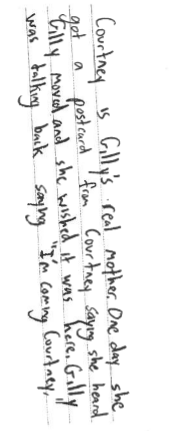 Courtney is Gilly's real mother. One day she
got a postcard from Courtney saying she heard
Gilly moved and she wished it was here. Gilly
was talking back saying "I'm coming Courtney,"